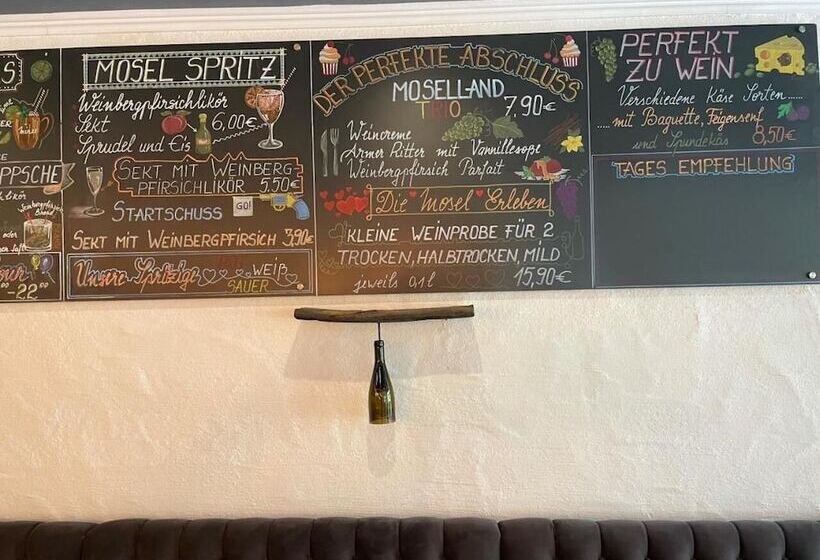 S
PPSCHE
oder
-22⁰⁰
MOSEL SPRITZ
Weinbergpfirsichlikör
Sekt 6,00€
Sprudel und Eis
SEKT MIT WEINBERG-
PFIRSICHLIKÖR 5,50€
STARTSCHUSS GO!
SEKT MIT WEINBERGPFIRSICH 3,90€
Unsere Spritzige WEIß
SAUER
DER PERFEKTE ABSCHLUSS
MOSELLAND
TRIO 7,90€
Weincreme
Armer Ritter mit Vanillesoße
Weinbergpfirsich Parfait
Die Mosel Erleben
KLEINE WEINPROBE FÜR 2
TROCKEN, HALBTROCKEN, MILD
jeweils 0,1 l 15,90€
PERFEKT
ZU WEIN
Verschiedene Käse Sorten
mit Baguette, Feigensenf
und Spundekäs 8,50€
TAGES EMPFEHLUNG